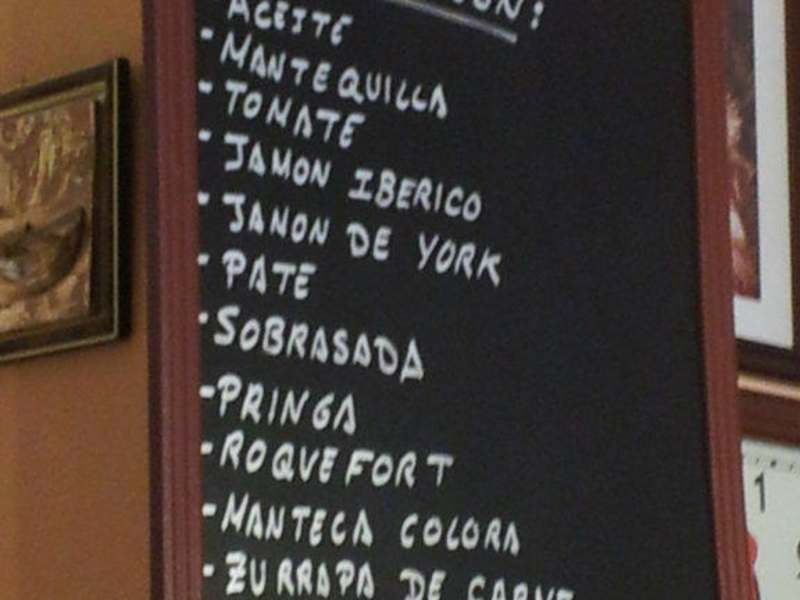 ACEITE
- MANTEQUILLA
- TOMATE
- JAMON IBERICO
- JANON DE YORK
- PATE
- SOBRASADA
- PRINGA
- ROQUEFORT
- MANTECA COLORA
- ZURRAPA DE CARNE
1